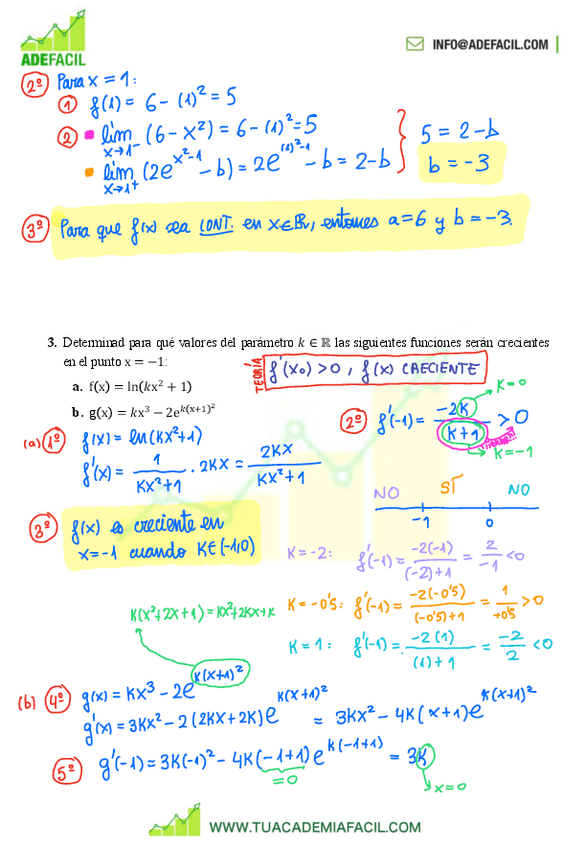 ADEFACIL
INFO@ADEFACIL.COM
2º Para x = 1:
① f(1) = 6 - (1)² = 5
② lím x→1⁻ (6 - x²) = 6 - (1)² = 5
lím x→1⁺ (2e^(x²-1) - b) = 2e^((1)²-1) - b = 2 - b
5 = 2 - b
b = -3
3º Para que f(x) sea CONT. en x∈ℝ, entonces a = 6 y b = -3.
3. Determinad para qué valores del parámetro k ∈ ℝ las siguientes funciones serán crecientes
en el punto x = −1:
TEORÍA f'(x₀) > 0, f(x) CRECIENTE
a. f(x) = ln(kx² + 1)
b. g(x) = kx³ − 2e^(k(x+1)²)
(a) 1º f(x) = ln(kx²+1)
f'(x) = 1/(kx²+1) · 2kx = 2kx/(kx²+1)
2º f'(-1) = -2k/(k+1) > 0
k = 0
k = -1
NO SÍ NO
-1 0
3º f(x) es creciente en
x = -1 cuando k∈(-1,0)
k = -2: f'(-1) = -2(-1)/((-2)+1) = 2/-1 < 0
k = -0'5: f'(-1) = -2(-0'5)/((-0'5)+1) = 1/+0'5 > 0
k = 1: f'(-1) = -2(1)/((1)+1) = -2/2 < 0
k(x²+2x+1) = kx²+2kx+k
(b) 4º g(x) = kx³ - 2e^(k(x+1)²)
g'(x) = 3kx² - 2(2kx+2k)e^(k(x+1)²) = 3kx² - 4k(x+1)e^(k(x+1)²)
5º g'(-1) = 3k(-1)² - 4k(-1+1)e^(k(-1+1)) = 3k
= 0
x = 0
WWW.TUACADEMIAFACIL.COM